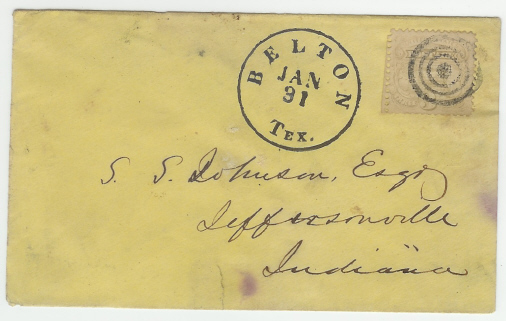 BELTON
JAN
31
TEX.
S. S. Johnson, Esq
Jeffersonville
Indiana